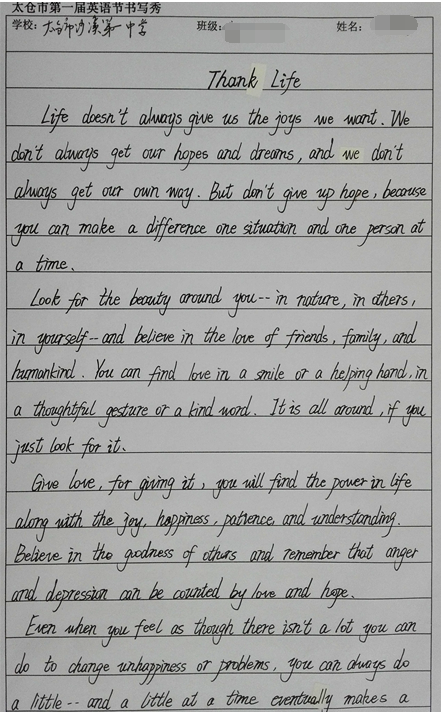 太仓市第一届英语节书写秀
学校: 太仓市沙溪第一中学 班级: 姓名:
Thank Life
Life doesn't always give us the joys we want. We
don't always get our hopes and dreams, and we don't
always get our own way. But don't give up hope, because
you can make a difference one situation and one person at
a time.
Look for the beauty around you--in nature, in others,
in yourself--and believe in the love of friends, family, and
humankind. You can find love in a smile or a helping hand, in
a thoughtful gesture or a kind word. It is all around, if you
just look for it.
Give love, for giving it, you will find the power in life
along with the joy, happiness, patience, and understanding.
Believe in the goodness of others and remember that anger
and depression can be counted by love and hope.
Even when you feel as though there isn't a lot you can
do to change unhappiness or problems, you can always do
a little--and a little at a time eventually makes a